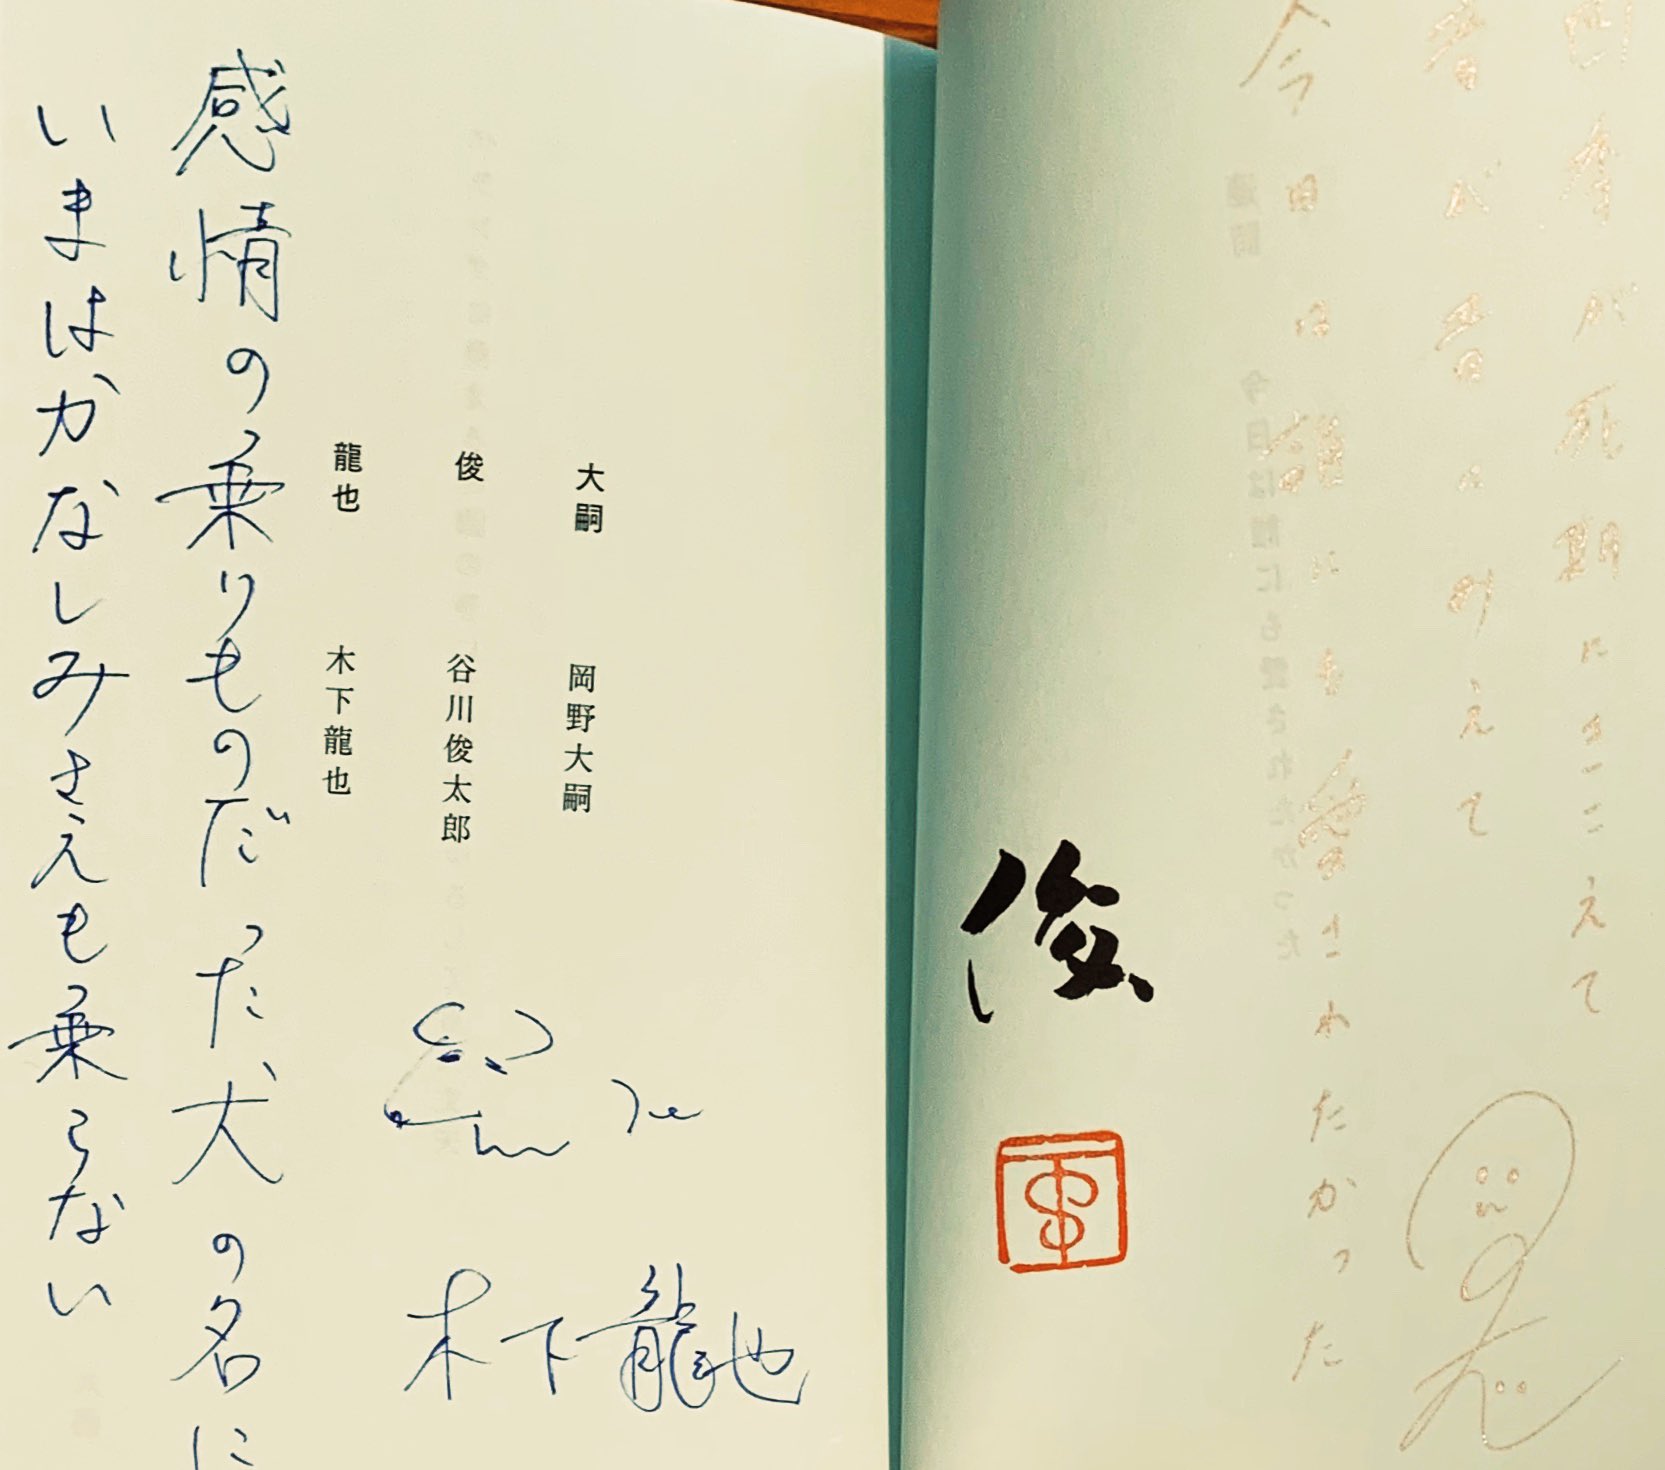 四季が死期にきこえて
音が昔にみえて
今日は誰にも愛されたかった
俊
大嗣 岡野大嗣
俊 谷川俊太郎
龍也 木下龍也
木下龍也
感情の乗りものだった犬の名に
いまはかなしみさえも乗らない